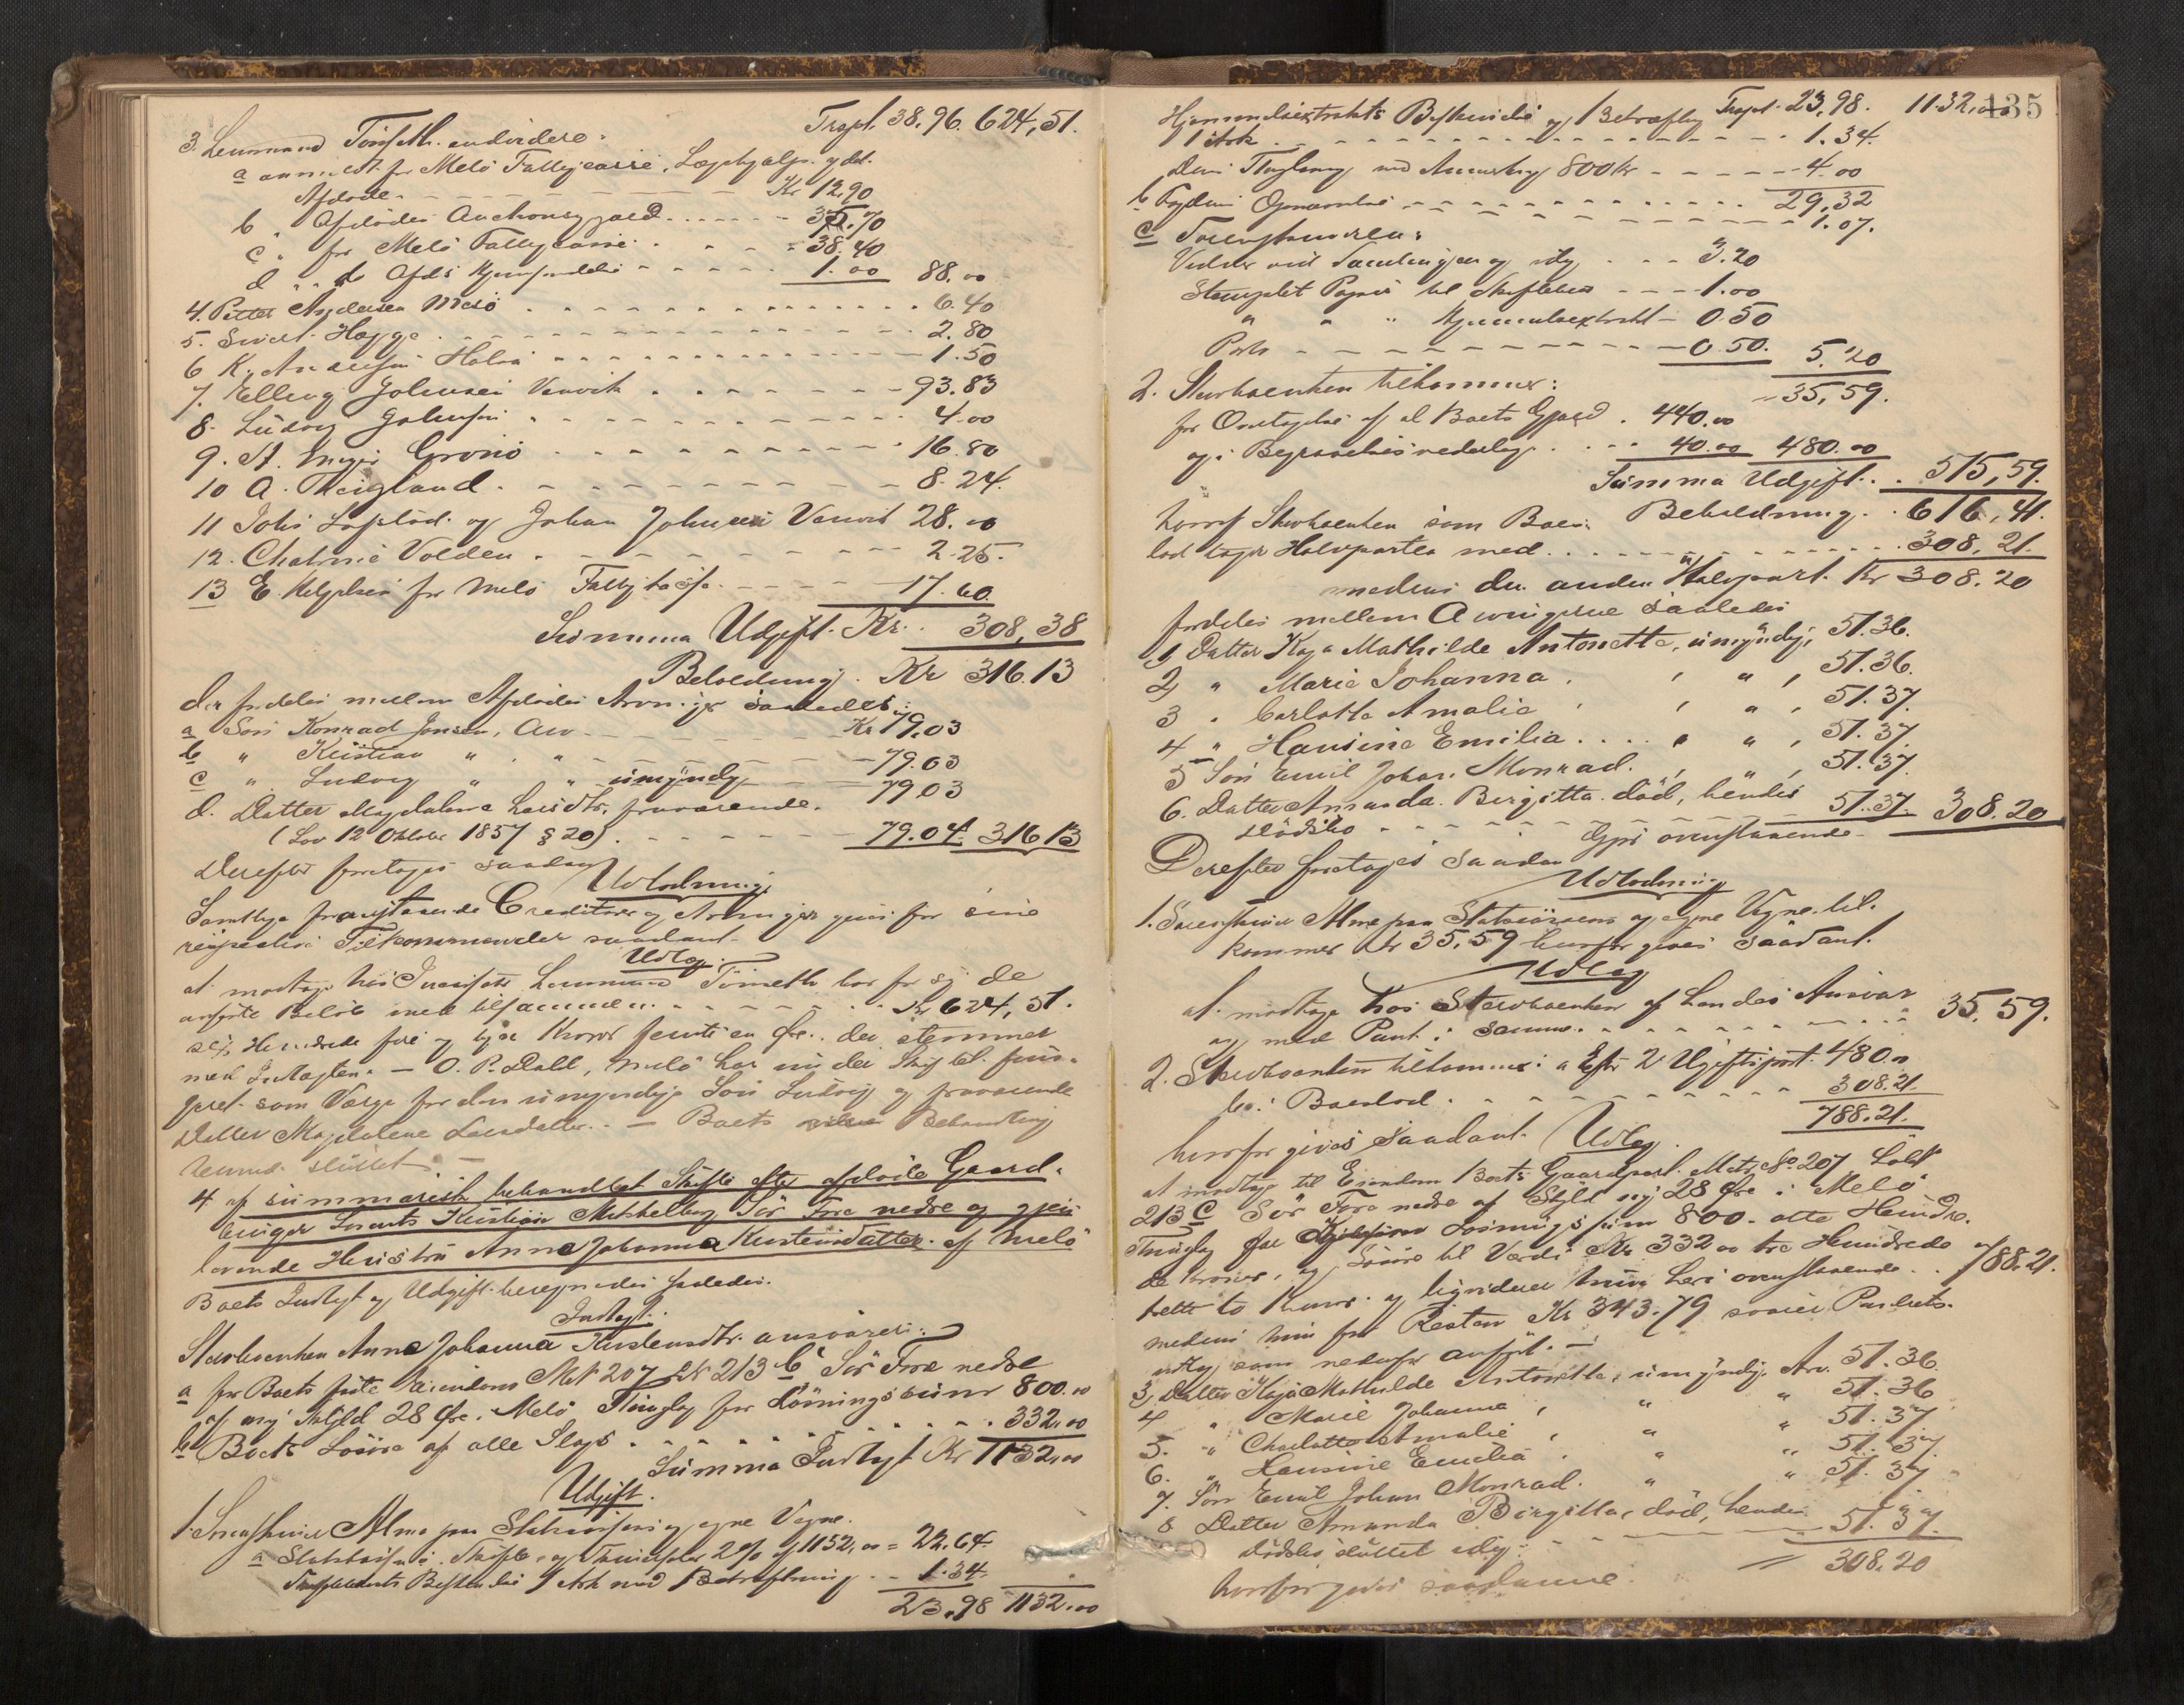 Trspt. 38.96. 624,51.
3. Lensmand Tönseth. endvidere:
a anmeldt for Melö Fattigcasse, Lægehjælp ydet
Afdöde - - - Kr 12.90
b " Afdödes Auctionsgjæld . . . . 35.70
c " for Melö Fattigcasse . . . . 38.40
d " do Afds Hjemsendelse - - - 1.00 88.00
4. Petter Andersen Melö . . . . 6.40
5. Sivert Hagge . . . . 2.80
6 K. Andersen Holm . . . . 1.50
7. Elling Johnsen Værvik . . . . 93.83
8. Ludvig Johnsen . . . . 4.00
9. A. Meyer Grönö . . . . 16.80
10 A. Reigland . . . . 8.24.
11 Johs Löfslöd. og Johan Johnsen Værvik 28.00
12. Chatrine Volden . . . . 2.25.
13 E. Helgesen for Melö Fattigkasse . . . . 17.60.
Summa Udgift. Kr. 308,38
Beholdning. Kr 316.13
der fordeles mellem Afdödes Arvinger saaledes:
a Sön Konrad Jensen, Arv - - - Kr 79.03
b " Kristian " " - - - 79.03
c " Ludvig " " umyndig - - 79.03
d. Datter Magdalena Larsdtr. fraværende.
(Lov 12 Oktober 1857 § 20) . . . . 79.04. 316.13
Derefter foretages saadan
Udlodning:
Samtlige foranstaaende Creditorer og Arvinger gives for sine
respective Tilkommender saadant
Udlæg:
at modtage hos Incassator Lensmand Tönseth hver for sig de
anförte Belöb med tilsammen . . . . Kr 624,51.
sex Hundrede fire og tyve Kroner femti en Öre. der stemmer
med Indtægten. — O. P. Dahl, Melö har under Skiftet fun-
geret som Værge for den umyndige Sön Ludvig og fraværende
Datter Magdalene Larsdatter. — Boets Behandling
hermed sluttet —
4 af summarisk behandlet Skifte efter afdöde Gaard-
bruger Lorents Kristian Mikkelborg Sör Fore nedre og gjen-
levende Hustru Anna Johanna Kirstensdatter. af Melö
Boets Indtægt og Udgift beregnedes saaledes.
Indtægt:
Stervboenken Anna Johanna Kirstensdtr. ansvarer:
a for Boets faste Eiendom Mat 207 Lb 213 c Sör Fore nedre
af ny Skyld 28 Öre i Melö Thinglag for Lösningssum 800.00
b Boets Lösöre af alle Slags . . . . 332.00
Summa Indtægt Kr 1132.00
Udgift.
1. Sorenskriver Alme paa Statskassens og egne Vegne.
a Statskassen i Skifte- og 2% af 1132,00 = 22.64.
Beskrivelse 1 Ark med Bekræftning . . 1.34.
23.98 1132.00
135
Hjemmelsextrakts Beskrivelse og Bekræftg Trspt. 23.98. 1132,00
1 Ark . . . . 1.34.
Dens Thinglæsng med Anmærkng 800 Kr - - - 4.00
29,32
b Fogdens Gjennemlæs . . . . 1.07.
c Sorenskriveren:
Vidner ved Samlingen og Udlg . . . . 3.20
Stemplet Papir til Skiftebrev - - - 1.00
" " " Hjemmelsextrakt - 0.50
Porto - - - - 0.50. 5.20
35,59.
2. Stervboenken tilkommer:
for Overtagelse af al Boets Gjæld . 440.00
og i Begravelsesvederlag . . . 40.00 480.00
Summa Udgift. . . 515,59.
Beholdning. . 616,41.
hvoraf Stervboenken som Boes-
lod tager Halvparten med . . . . 308,21.
medens den anden Halvpart. Kr 308.20
fordeles mellem Arvingerne saaledes
1 Datter Kaja Mathilde Antonette, umyndig, 51.36.
2 " Marie Johanna , , " , 51.36.
3 " Carlotte Amalie , , " , 51.37.
4 " Hansine Emilia . . . , " , 51.37
5 Sön Emil Johan Monrad. , " , 51.37
6. Datter Amanda Birgitta död, hendes
Dödsbo . . . . 51.37. 308.20
Derefter foretages saadan
Udlodning
1. Sorenskriver Alme paa Statskassens og egne Vegne til-
kommer Kr 35,59 hvorfor gives saadant.
Udlæg
at modtage hos Stervboenken af hendes Ansvar
og med Pant i samme . . . . 35.59.
2. Stervboenken tilkommer: a Eftr 2 Udgiftspost. 480.00
b i Boeslod . . . . 308.21.
788.21.
hvorfor gives saadant. Udlæg.
at modtage til Eiendom Boets Gaardpart. Mats No 207 Löb No
213 c Sör Fore nedre af Skyld ny 28 Öre i Melö
Thinglag for Lösningssum 800. otte Hundre-
de Kroner, og Lösöre til Værdi Kr 332 00 tre Hundrede og
tretti to Kroner. og liqviderer hun heri ovenstaaende . . 788.21.
medens hun for Resten Kr 343.79 svarer Panthets-
udlæg som nedenfor anfört. —
3. Datter Kaja Mathilde Antonette, umyndig. Arv. 51.36.
4 " Marie Johanna , " " 51.36
5. " Charlotte Amalie , " " 51.37
6. " Hansine Emilia , " " 51.37.
7. Sön Emil Johan Monrad. " " 51.37
8 Datter Amanda Birgitta, död, hendes
Dödsbo sluttet idag: - - - 51.37.
308.20
hvorfor gives saadanne.